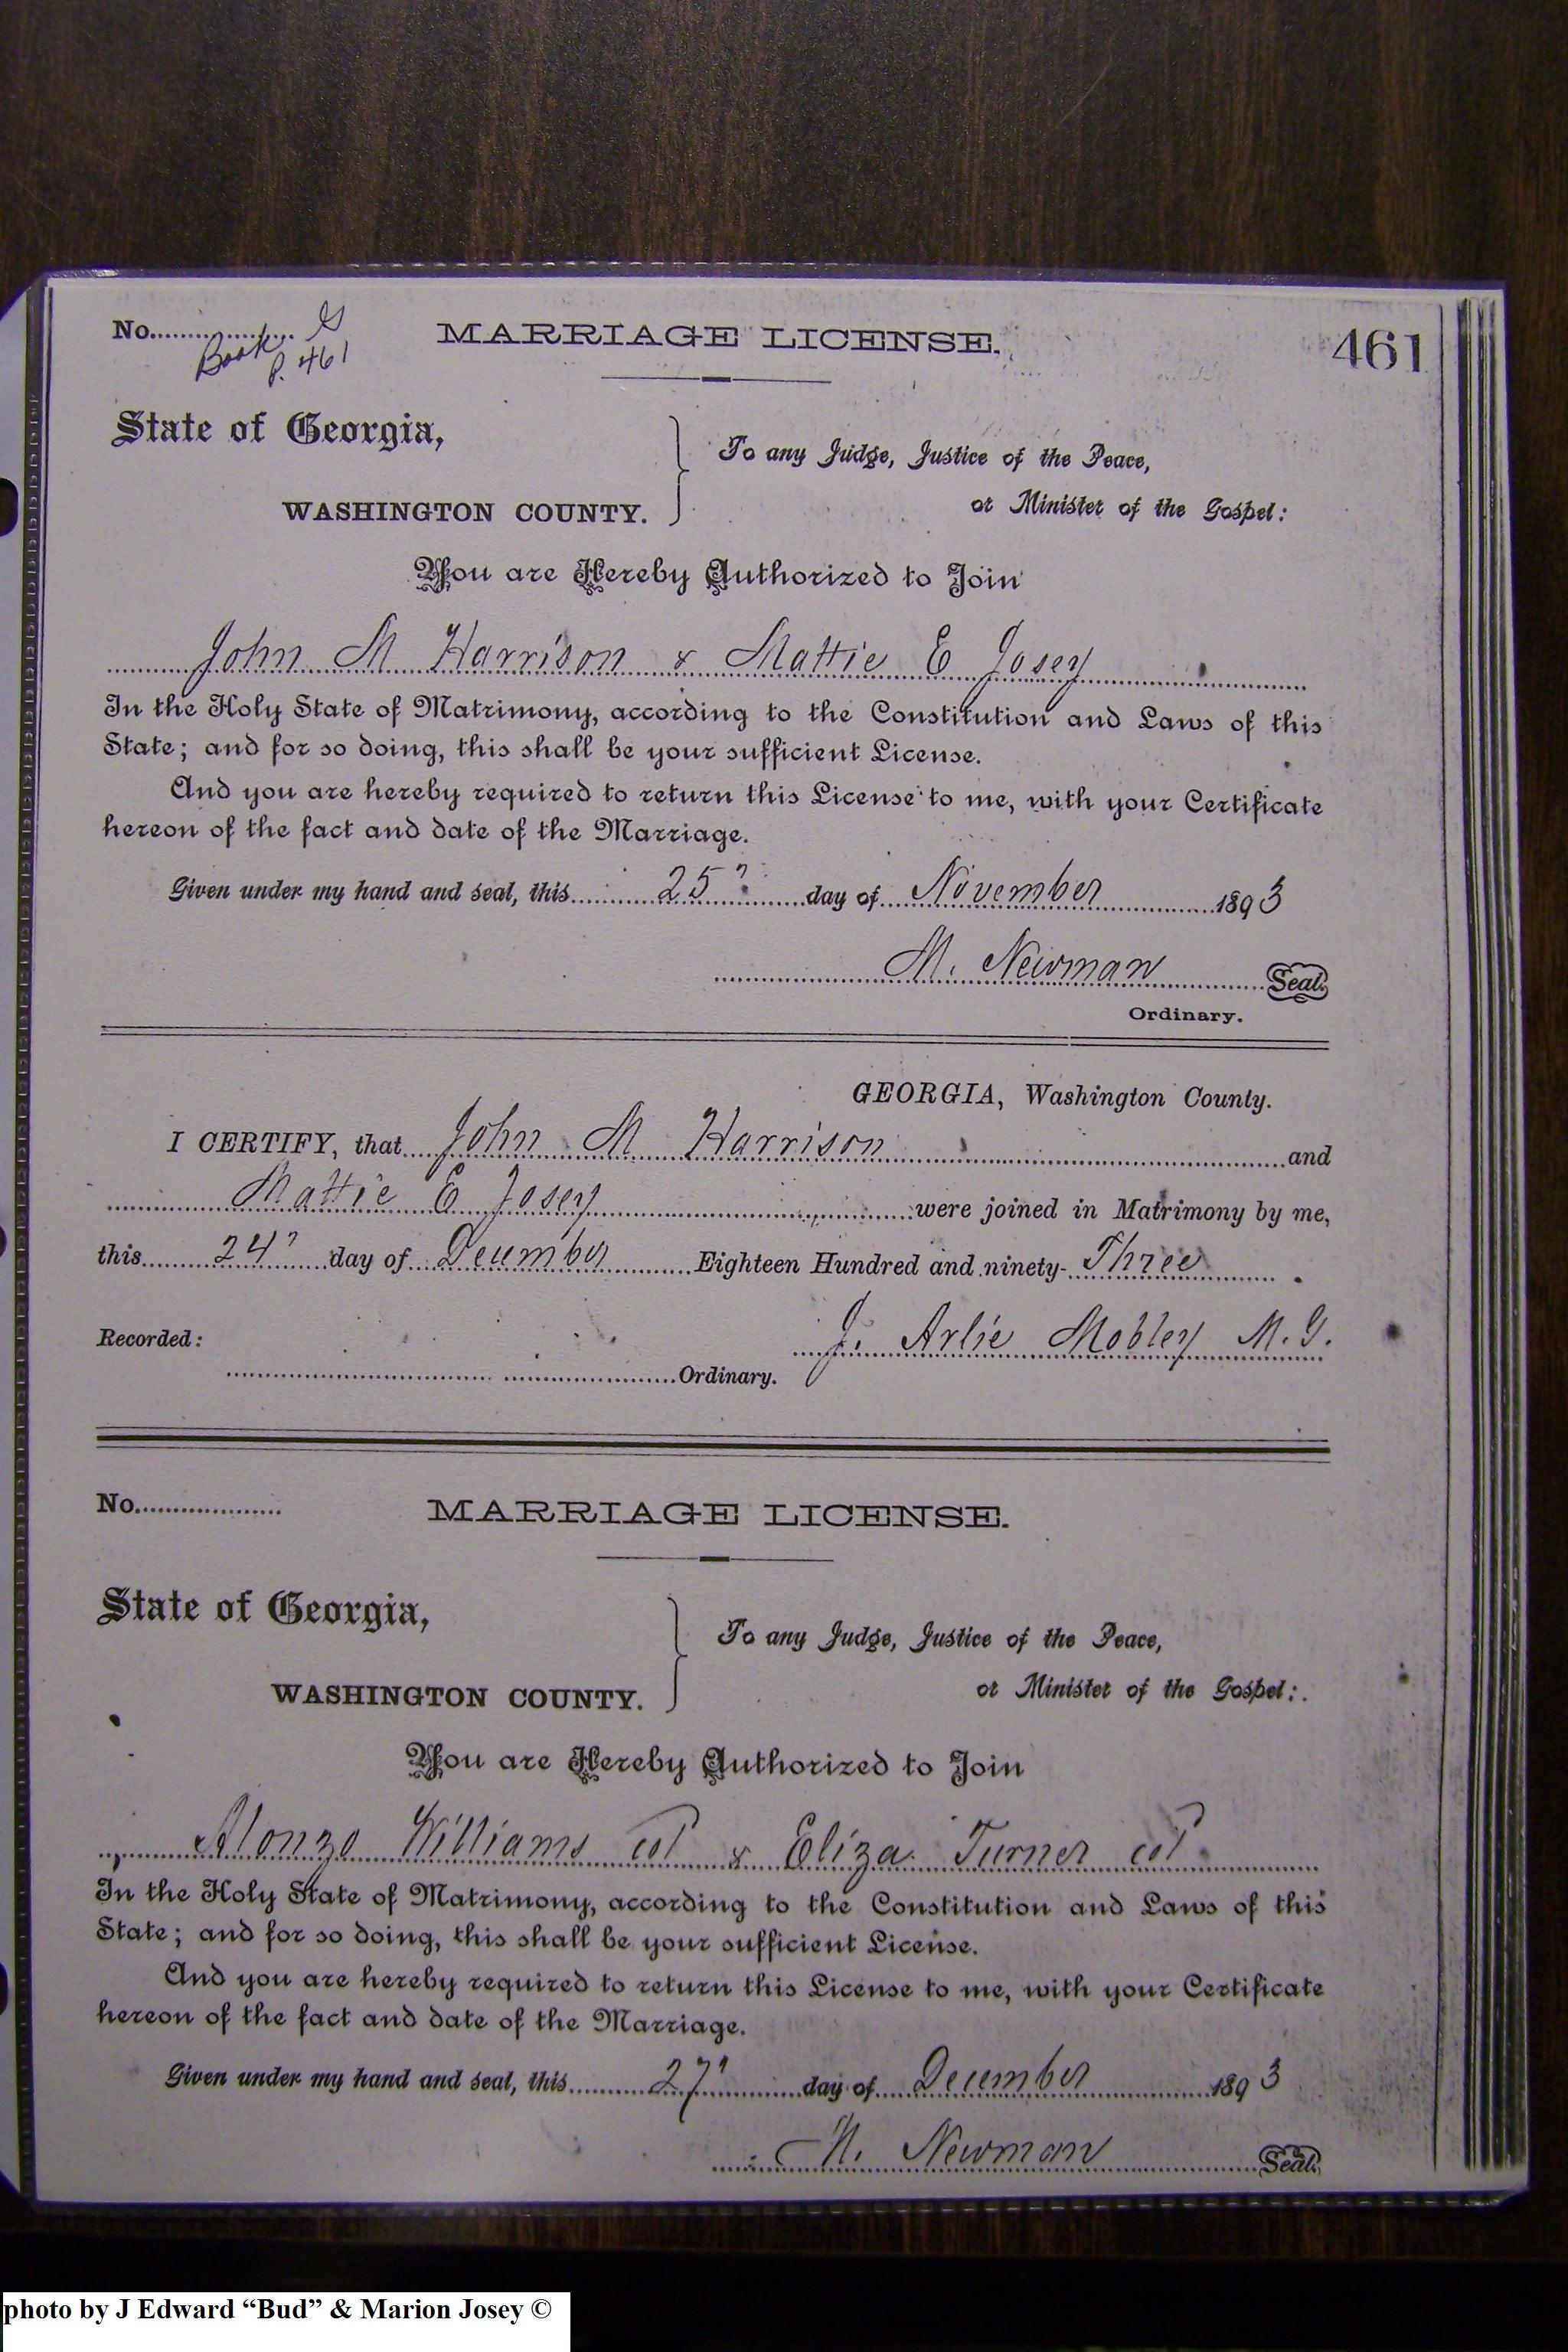 No.................. G
MARRIAGE LICENSE.
461
Book
P. 461
State of Georgia,
WASHINGTON COUNTY.
To any Judge, Justice of the Peace,
or Minister of the Gospel:
You are Hereby Authorized to Join
John M Harrison & Mattie E Josey
In the Holy State of Matrimony, according to the Constitution and Laws of this
State; and for so doing, this shall be your sufficient License.
And you are hereby required to return this License to me, with your Certificate
hereon of the fact and date of the Marriage.
Given under my hand and seal, this 25" day of November 1893
M. Newman Seal.
Ordinary.
GEORGIA, Washington County.
I CERTIFY, that John M Harrison and
Mattie E Josey were joined in Matrimony by me,
this 24" day of December Eighteen Hundred and ninety-Three
J. Arlie Mobley M. G.
Recorded:
Ordinary.
No...................
MARRIAGE LICENSE.
State of Georgia,
WASHINGTON COUNTY.
To any Judge, Justice of the Peace,
or Minister of the Gospel:
You are Hereby Authorized to Join
Alonzo Williams col & Eliza Turner col
In the Holy State of Matrimony, according to the Constitution and Laws of this
State; and for so doing, this shall be your sufficient License.
And you are hereby required to return this License to me, with your Certificate
hereon of the fact and date of the Marriage.
Given under my hand and seal, this 27" day of December 1893
M. Newman Seal.
photo by J Edward “Bud” & Marion Josey ©